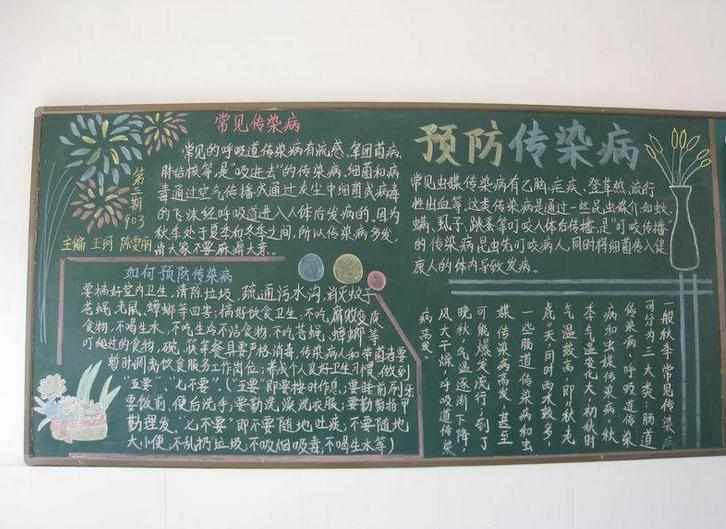 预防传染病
常见传染病
常见的呼吸道传染病有流感、军团菌病、
肺结核等是“吸进去”的传染病,细菌和病
毒通过空气传播或通过灰尘中细菌或病毒
的飞沫经呼吸道进入人体后发病的,因为
秋季处于夏季和冬季之间,所以传染病多发,
请大家不要麻痹大意。
第三期
903
主编 王珂
如何预防传染病
要搞好室内卫生,清除垃圾,疏通污水沟,消灭蚊子
苍蝇、老鼠、蟑螂等四害;搞好饮食卫生,不吃腐败变质
食物,不喝生水,不吃生冷不洁食物,不吃苍蝇、蟑螂等
叮爬过的食物,碗、筷等餐具要严格消毒,传染病人和带菌者要
暂时调离饮食服务工作岗位;养成个人良好卫生习惯,做到
“五要”、“七不要”。(“五要”即要按时作息;要睡前刷牙
要饭前、便后洗手;要勤洗澡洗衣服;要勤剪指甲
勤理发。“七不要”即不要随地吐痰;不要随地
大小便,不乱扔垃圾,不吸烟吸毒,不喝生水等)
常见虫媒传染病有乙脑、疟疾、登革热、流行
性出血等,这类传染病是通过一些昆虫媒介如蚊、
螨、虱子、跳蚤等叮咬人体传播,是“叮咬传播”
的传染病,昆虫先叮咬病人,同时将细菌传入健
康人的体内导致发病。
一般秋季常见传染病
可分为三大类、肠道
传染病、呼吸道传染
病和虫媒传染病,秋
季气温变化大,初秋时
气温较高,即“秋老
虎”天,同时雨水较多,
一些肠道传染病和虫
媒传染病高发,甚至
可能爆发流行;到了
晚秋,气温逐渐下降,
风大干燥,呼吸道传染
病高发。